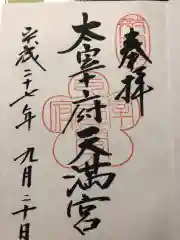 奉拝
太宰府天満宮
平成二十七年九月二十日